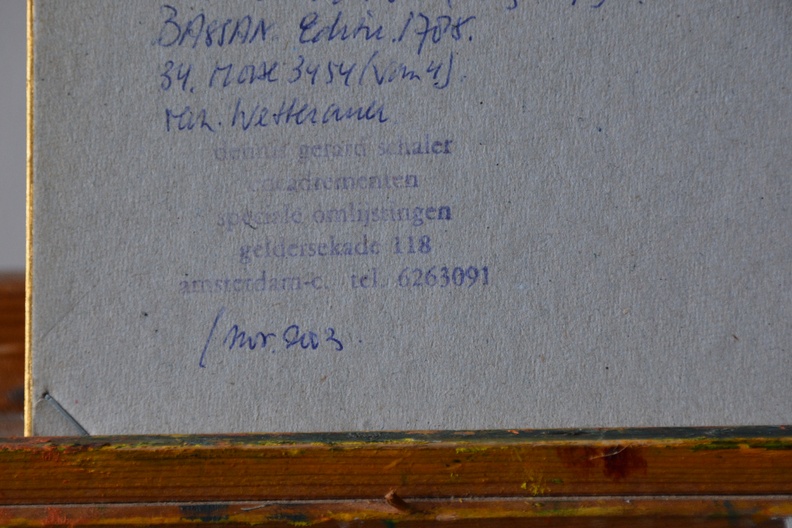 BASSAN Editiu. 1708.
34. Moise 3454 (van 4).
ran. Wetteraner
dennis gerard schaler
encadrementen
speciale omlijstingen
geldersekade 118
amsterdam-c. tel. 6263091
/ nov. 2003